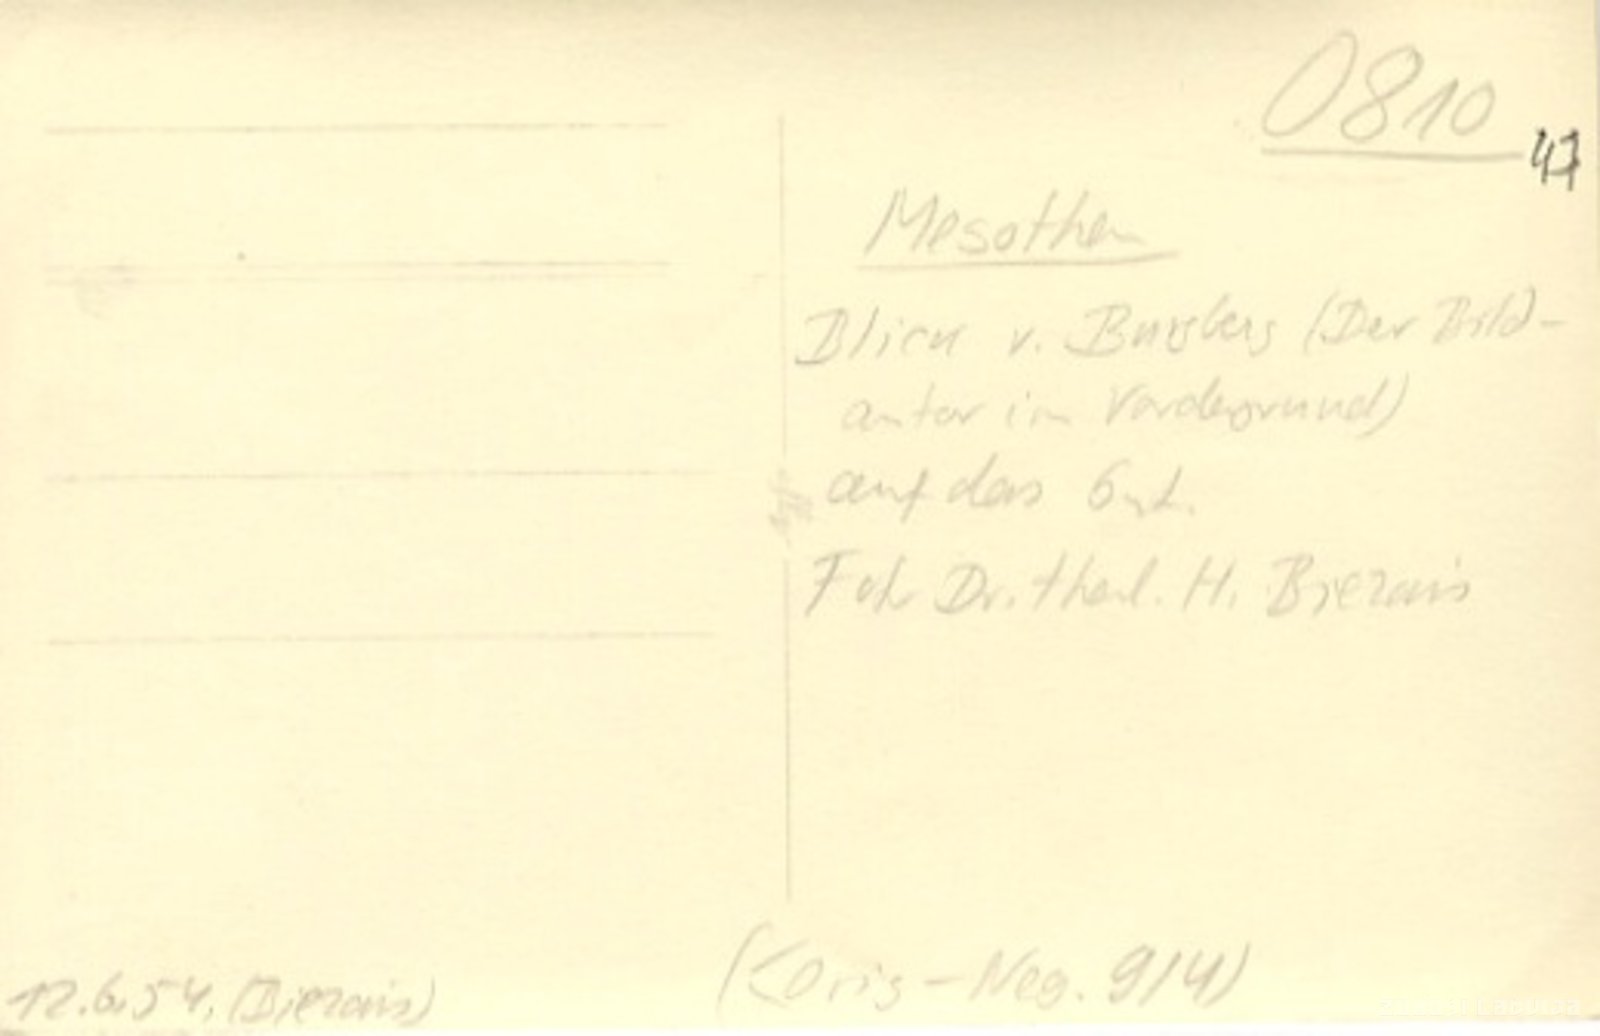 0810
47
Mesothen
Blick v. Burgberg (Der Bild-
autor im Vordergrund)
auf das Gut.
Foto Dr. theol. H. Bierzais
12.6.54. (Bierzais)
Orig-Neg. 9/4)